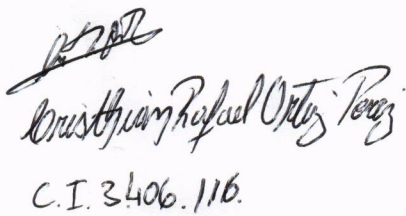 Cristhian Rafael Ortiz Perez
C.I. 3.406.116.